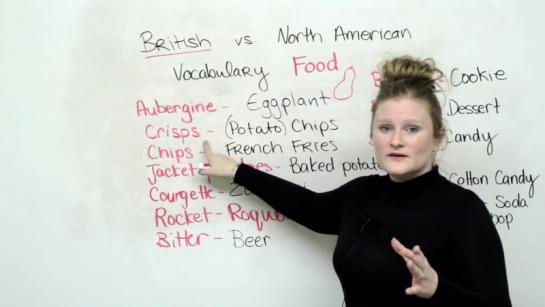 British vs North American
Vocabulary Food
Aubergine - Eggplant
Crisps - (Potato) Chips
Chips - French Fries
Jacket - Baked
Courgette -
Rocket -
Bitter - Beer
Cookie
Dessert
Candy
Cotton Candy
- Soda